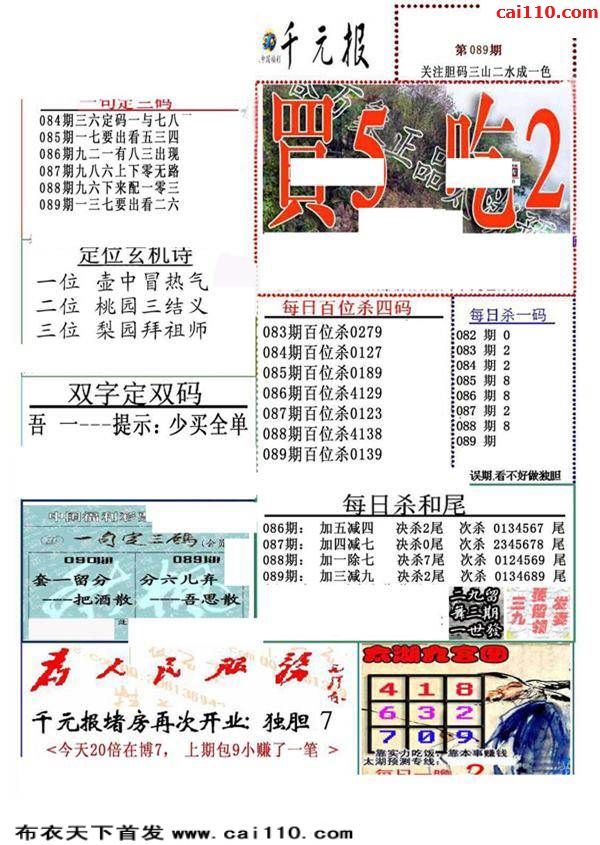 cai110.com
千元报
第089期
关注胆码三山二水成一色
一句定三码
084期三六定码一与七八
085期一七要出看五三四
086期九二一有八三出现
087期九八六上下零无路
088期九六下来配一零三
089期一三七要出看二六
買5 吃2
定位玄机诗
一位 壶中冒热气
二位 桃园三结义
三位 梨园拜祖师
每日百位杀四码
083期百位杀0279
084期百位杀0127
085期百位杀0189
086期百位杀4129
087期百位杀0123
088期百位杀4138
089期百位杀0139
每日杀一码
082 期 0
083 期 2
084 期 2
085 期 8
086 期 8
087 期 2
088 期 8
089 期
误期.看不好做独胆
双字定双码
吾 一---提示:少买全单
每日杀和尾
086期: 加五减四 决杀2尾 次杀 0134567 尾
087期: 加四减七 决杀0尾 次杀 2345678 尾
088期: 加一除七 决杀7尾 次杀 0124569 尾
089期: 加三减九 决杀2尾 次杀 0134689 尾
中国福利彩
一句定三码
090期 089期
套一留分 分六儿弃
---把酒散 ---吾思散
为人民服务
千元报堵房再次开业: 独胆 7
<今天20倍在博7, 上期包9小赚了一笔 >
太湖九宫图
4 1 8
6 3 2
7 0 9
靠实力吃饭,靠本事赚钱
太湖预测专线:
布衣天下首发 www.cai110.com